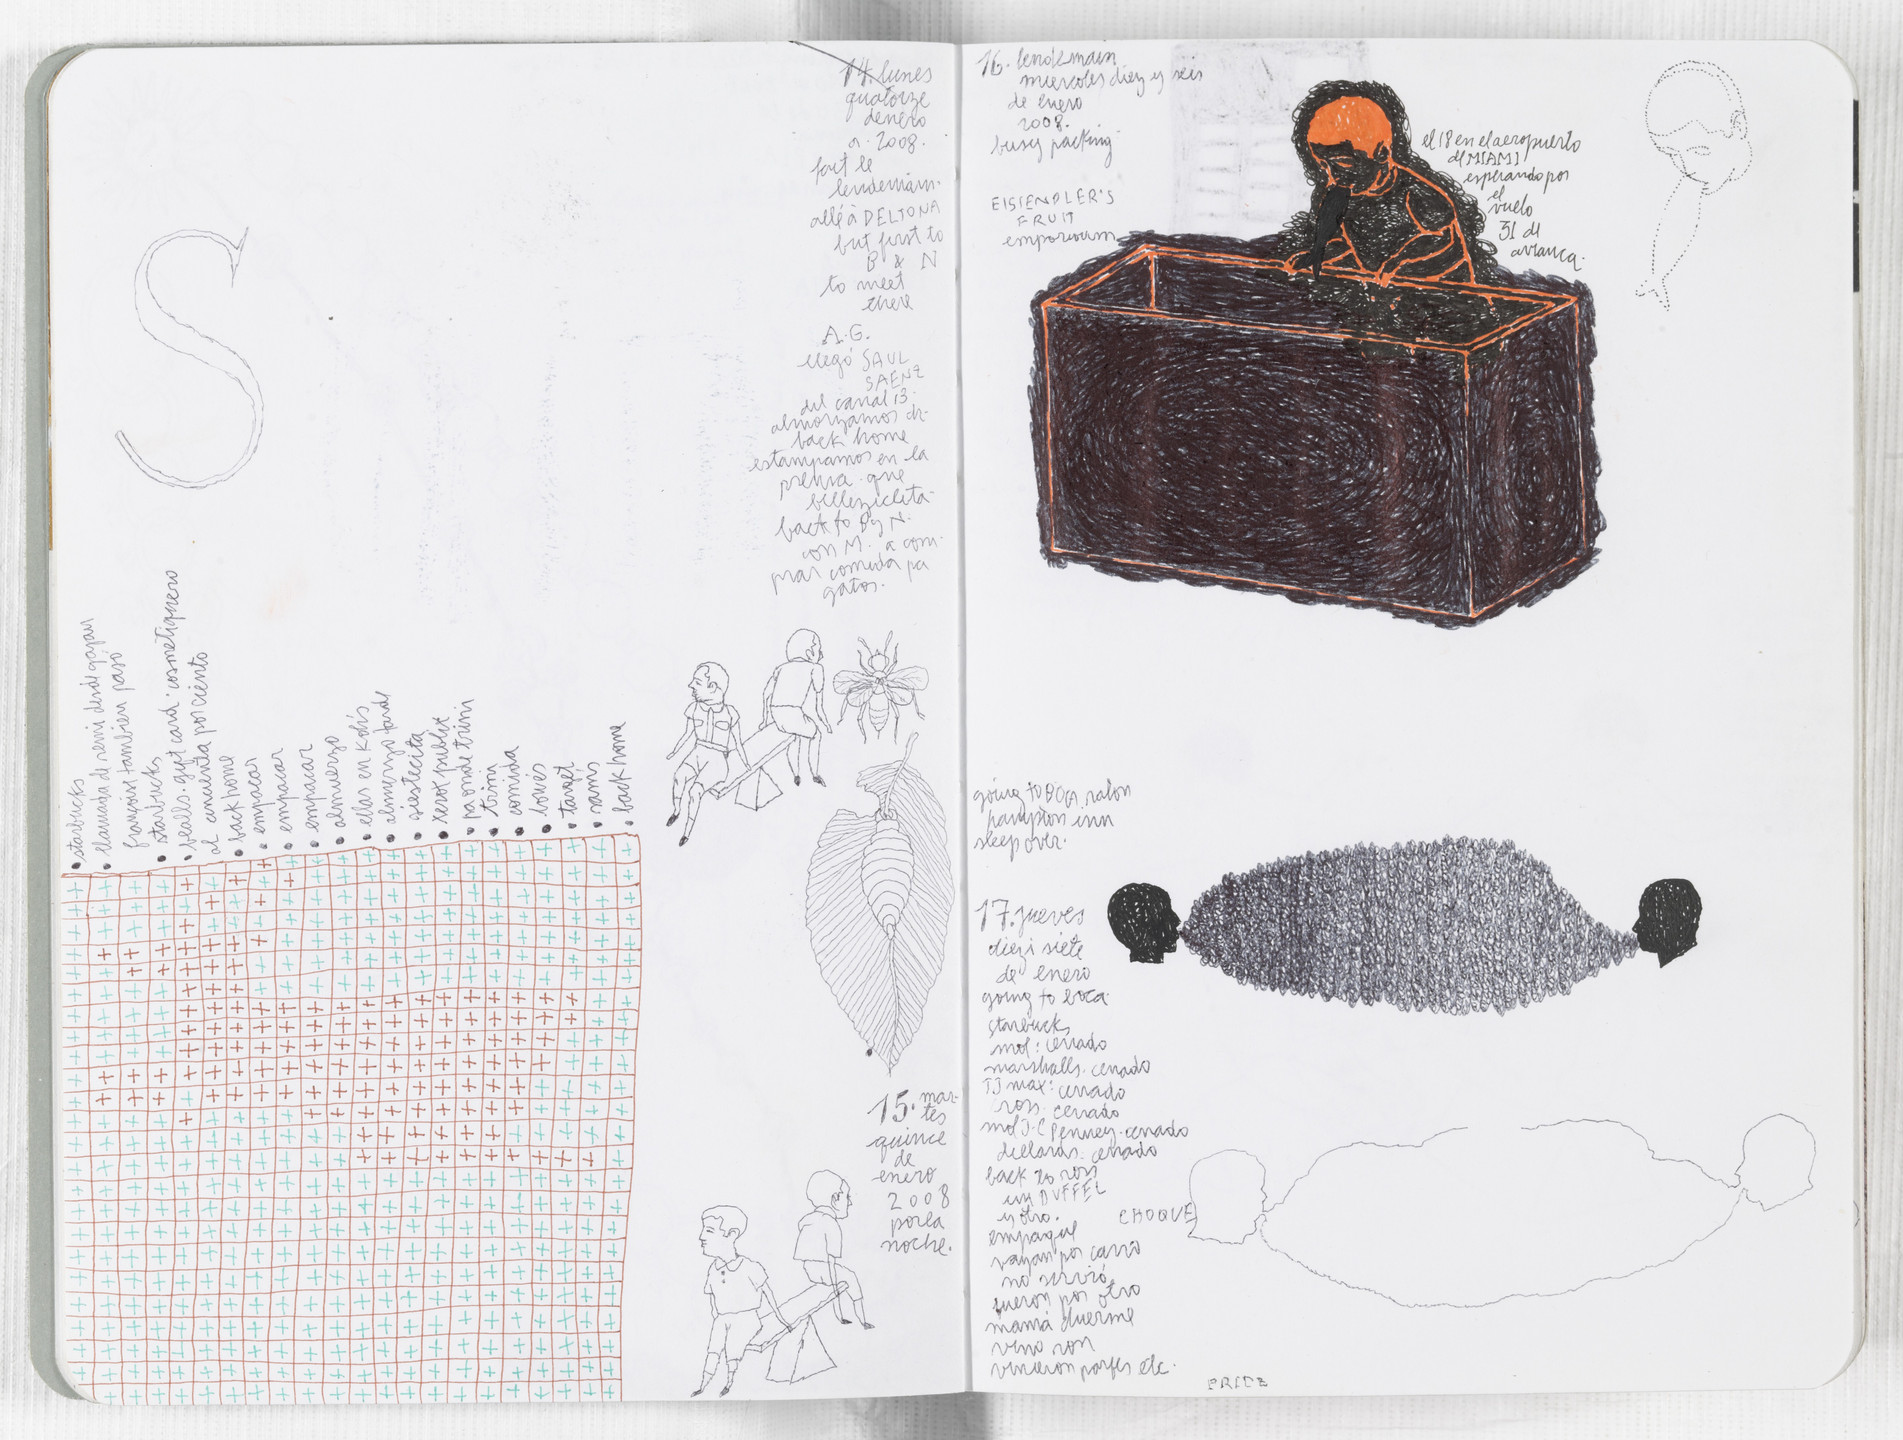 S
14. lunes
quatorze
denero
2008.
fait le
lendemain.
allé à DELTONA
but first to
B & N
to meet
there
A.G.
llegó SAUL
SAENZ
del canal 13.
almorzamos
back home
estampamos en la
prensa que
back to B y N.
con M. a com-
prar comida pa
gatos.
starbucks
llamada de remi desde
françois tambien paso
starbucks
bealls. gift card. cosmetiquero
al cincuenta por ciento
back home
empacar
empacar
empacar
almuerzo
ellas en kohls
almuerzo tarde
siestecita
xerox publix
pa onde trini
trini
comida
lowes
target
sams
back home
15. mar-
tes
quince
de
enero
2008
por la
noche.
16. lendemain
miercoles diez y seis
de enero
2008.
busy packing
EISTENDLER'S
FRUIT
emporium
el 18 en el aeropuerto
d MIAMI
esperando por
el
vuelo
31 d
avianca.
going to BOCA raton
hampton inn
sleep over.
17. jueves
diez i siete
de enero
going to boca
starbucks
mol: cerrado
marshalls. cerrado
TJ max: cerrado
ross. cerrado
mol J.C Penney. cerrado
dillards. cerrado
back to ross
un DUFFEL
y otro.
empaque
vayan por carro
no sirvió
fueron por otro
mamá duerme
vino ron
vinieron etc.
CHOQUE